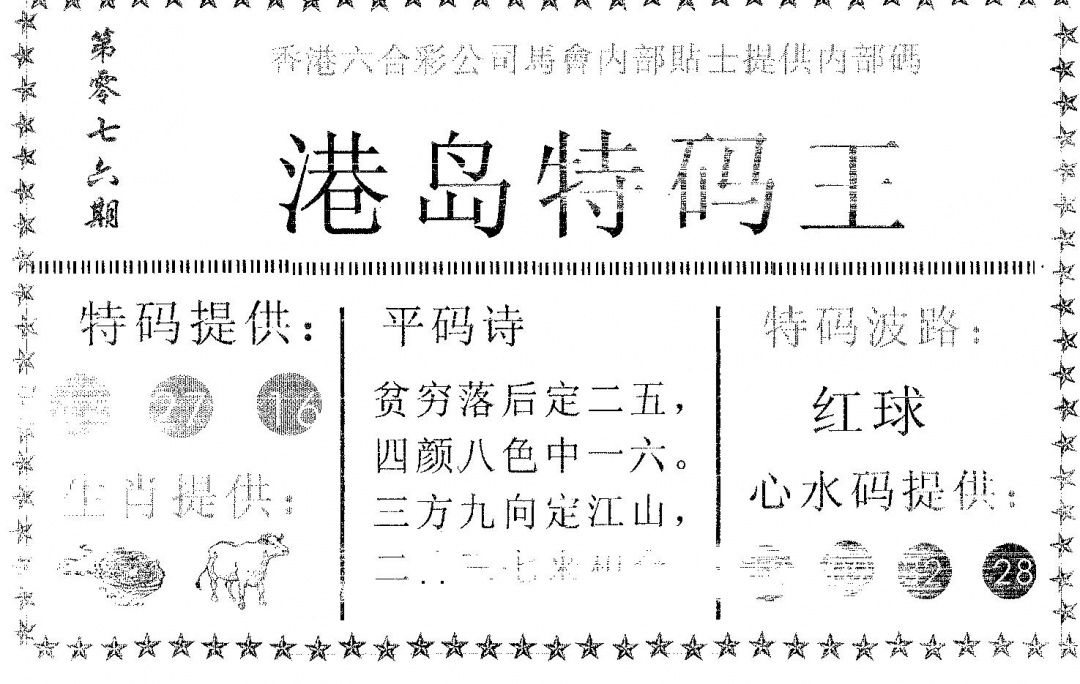 第零七六期
香港六合彩公司馬會内部貼士提供内部碼
港岛特码王
特码提供：
27 16
生肖提供：
平码诗
贫穷落后定二五，
四颜八色中一六。
三方九向定江山，
特码波路：
红球
心水码提供：
28